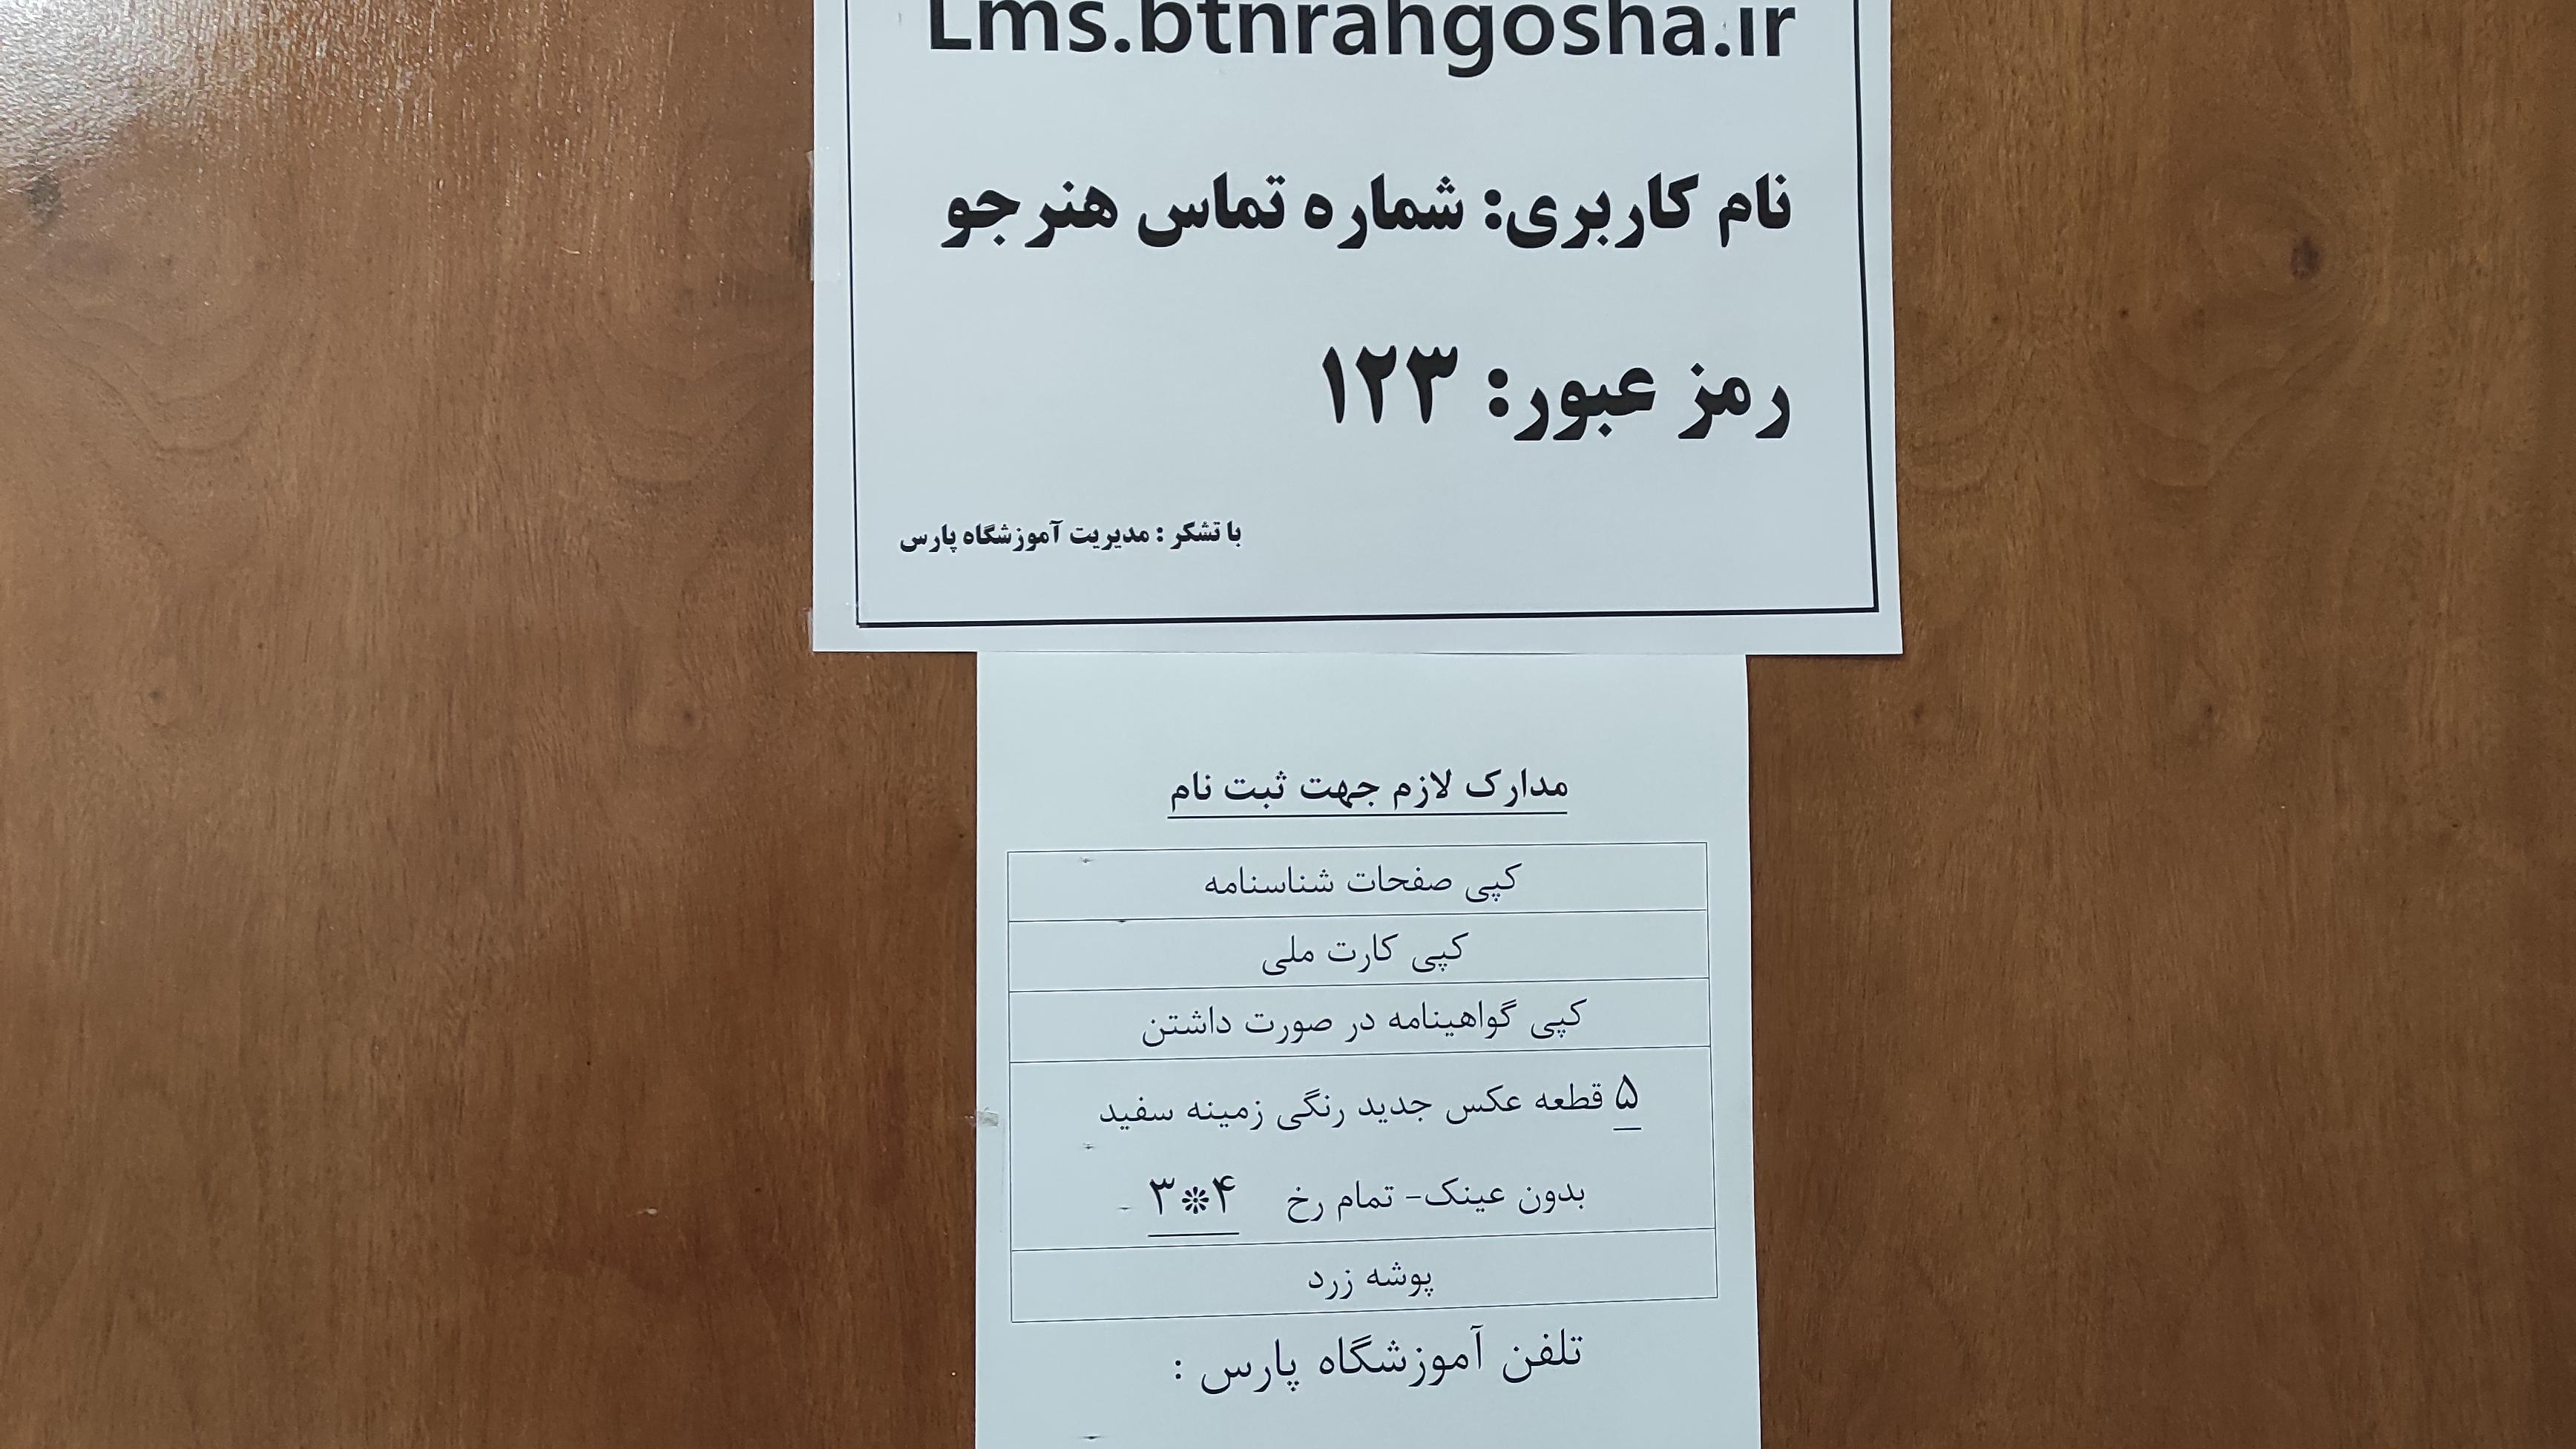 Lms.btnrahgosha.ir
نام کاربری: شماره تماس هنرجو
رمز عبور: ۱۲۳
با تشکر : مدیریت آموزشگاه پارس
مدارک لازم جهت ثبت نام
کپی صفحات شناسنامه
کپی کارت ملی
کپی گواهینامه در صورت داشتن
۵ قطعه عکس جدید رنگی زمینه سفید
بدون عینک- تمام رخ ۴*۳
پوشه زرد
تلفن آموزشگاه پارس :